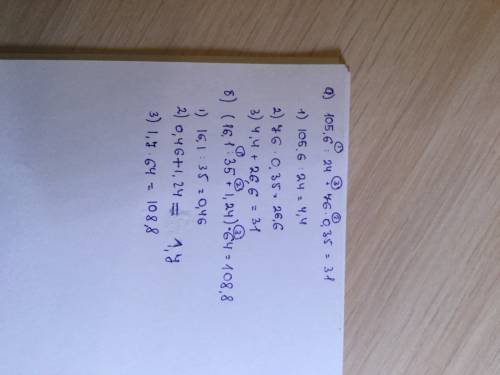 а) 105,6 : 24 + 76 · 0,35 = 31
1) 105.6 : 24 = 4,4
2) 76 · 0,35 = 26,6
3) 4,4 + 26,6 = 31
б) (16,1 : 35 + 1,24) · 64 = 108,8
1) 16,1 : 35 = 0,46
2) 0,46 + 1,24 = 1,7
3) 1,7 · 64 = 108,8